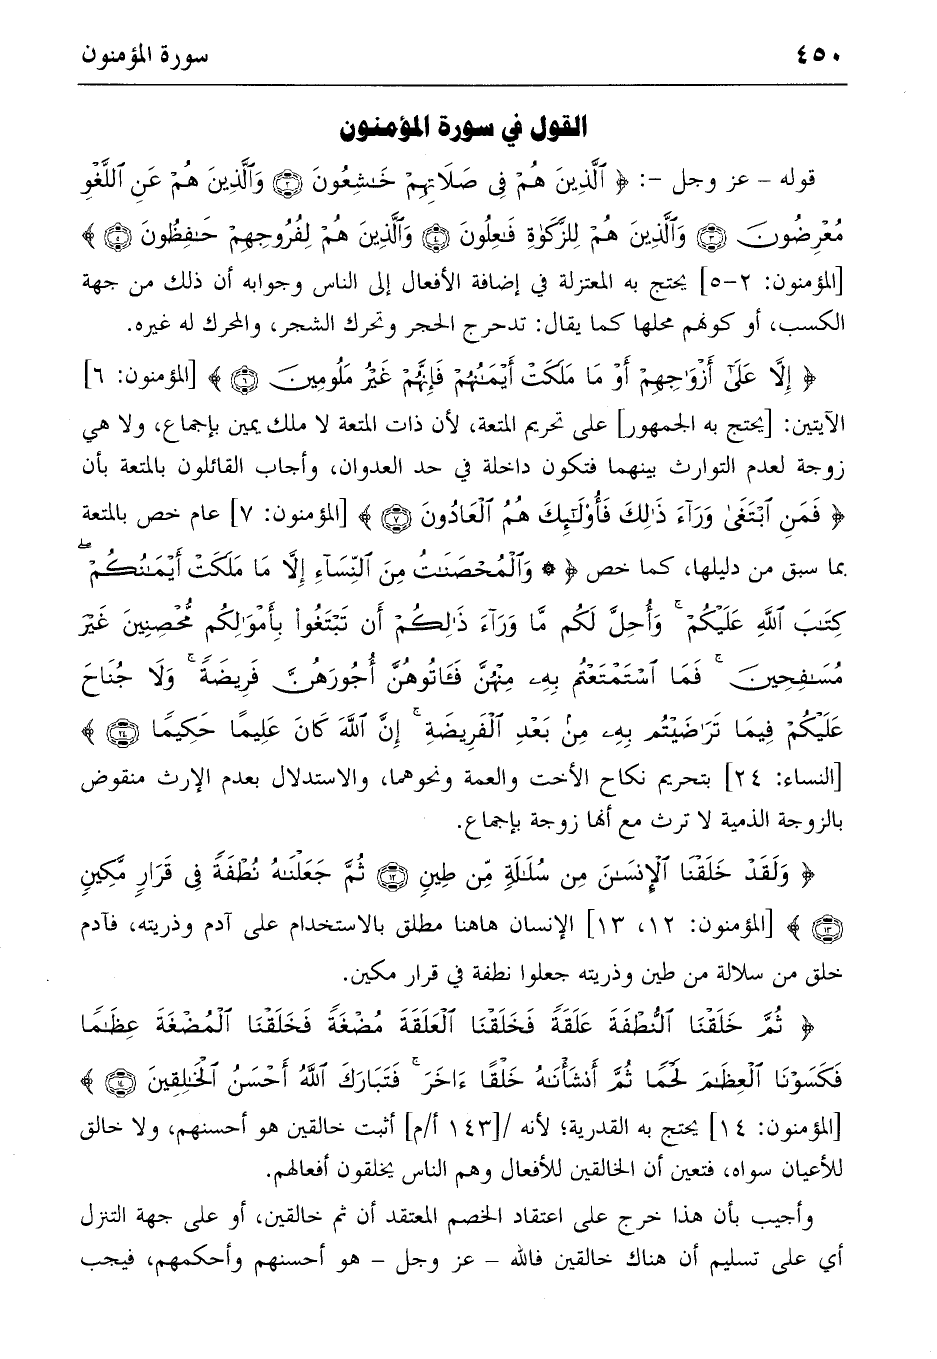 ٤٥٠ سورة المؤمنون
القول في سورة المؤمنون
قوله - عز وجل -: ﴿ ٱلَّذِينَ هُمْ فِى صَلَاتِهِمْ خَـٰشِعُونَ ۝٢ وَٱلَّذِينَ هُمْ عَنِ ٱللَّغْوِ
مُعْرِضُونَ ۝٣ وَٱلَّذِينَ هُمْ لِلزَّكَوٰةِ فَـٰعِلُونَ ۝٤ وَٱلَّذِينَ هُمْ لِفُرُوجِهِمْ حَـٰفِظُونَ ۝٥ ﴾
[المؤمنون: ٢-٥] يحتج به المعتزلة في إضافة الأفعال إلى الناس وجوابه أن ذلك من جهة
الكسب، أو كونهم محلها كما يقال: تدحرج الحجر وتحرك الشجر، والمحرك له غيره.
﴿ إِلَّا عَلَىٰٓ أَزْوَٰجِهِمْ أَوْ مَا مَلَكَتْ أَيْمَـٰنُهُمْ فَإِنَّهُمْ غَيْرُ مَلُومِينَ ۝٦ ﴾ [المؤمنون: ٦]
الآيتين: [يحتج به الجمهور] على تحريم المتعة، لأن ذات المتعة لا ملك يمين بإجماع، ولا هي
زوجة لعدم التوارث بينهما فتكون داخلة في حد العدوان، وأجاب القائلون بالمتعة بأن
﴿ فَمَنِ ٱبْتَغَىٰ وَرَآءَ ذَٰلِكَ فَأُو۟لَـٰٓئِكَ هُمُ ٱلْعَادُونَ ۝٧ ﴾ [المؤمنون: ٧] عام خص بالمتعة
بما سبق من دليلها، كما خص ﴿ ۞ وَٱلْمُحْصَنَـٰتُ مِنَ ٱلنِّسَآءِ إِلَّا مَا مَلَكَتْ أَيْمَـٰنُكُمْ ۖ
كِتَـٰبَ ٱللَّهِ عَلَيْكُمْ ۚ وَأُحِلَّ لَكُم مَّا وَرَآءَ ذَٰلِكُمْ أَن تَبْتَغُوا۟ بِأَمْوَٰلِكُم مُّحْصِنِينَ غَيْرَ
مُسَـٰفِحِينَ ۚ فَمَا ٱسْتَمْتَعْتُم بِهِۦ مِنْهُنَّ فَـَٔاتُوهُنَّ أُجُورَهُنَّ فَرِيضَةً ۚ وَلَا جُنَاحَ
عَلَيْكُمْ فِيمَا تَرَٰضَيْتُم بِهِۦ مِنۢ بَعْدِ ٱلْفَرِيضَةِ ۚ إِنَّ ٱللَّهَ كَانَ عَلِيمًا حَكِيمًا ۝٢٤ ﴾
[النساء: ٢٤] بتحريم نكاح الأخت والعمة ونحوهما، والاستدلال بعدم الإرث منقوض
بالزوجة الذمية لا ترث مع أنها زوجة بإجماع.
﴿ وَلَقَدْ خَلَقْنَا ٱلْإِنسَـٰنَ مِن سُلَـٰلَةٍ مِّن طِينٍ ۝١٢ ثُمَّ جَعَلْنَـٰهُ نُطْفَةً فِى قَرَارٍ مَّكِينٍ
۝١٣ ﴾ [المؤمنون: ١٢، ١٣] الإنسان هاهنا مطلق بالاستخدام على آدم وذريته، فآدم
خلق من سلالة من طين وذريته جعلوا نطفة في قرار مكين.
﴿ ثُمَّ خَلَقْنَا ٱلنُّطْفَةَ عَلَقَةً فَخَلَقْنَا ٱلْعَلَقَةَ مُضْغَةً فَخَلَقْنَا ٱلْمُضْغَةَ عِظَـٰمًا
فَكَسَوْنَا ٱلْعِظَـٰمَ لَحْمًا ثُمَّ أَنشَأْنَـٰهُ خَلْقًا ءَاخَرَ ۚ فَتَبَارَكَ ٱللَّهُ أَحْسَنُ ٱلْخَـٰلِقِينَ ۝١٤ ﴾
[المؤمنون: ١٤] يحتج به القدرية؛ لأنه /[١٤٣ أ/م] أثبت خالقين هو أحسنهم، ولا خالق
للأعيان سواه، فتعين أن الخالقين للأفعال وهم الناس يخلقون أفعالهم.
وأجيب بأن هذا خرج على اعتقاد الخصم المعتقد أن ثم خالقين، أو على جهة التنزل
أي على تسليم أن هناك خالقين فالله - عز وجل - هو أحسنهم وأحكمهم، فيجب